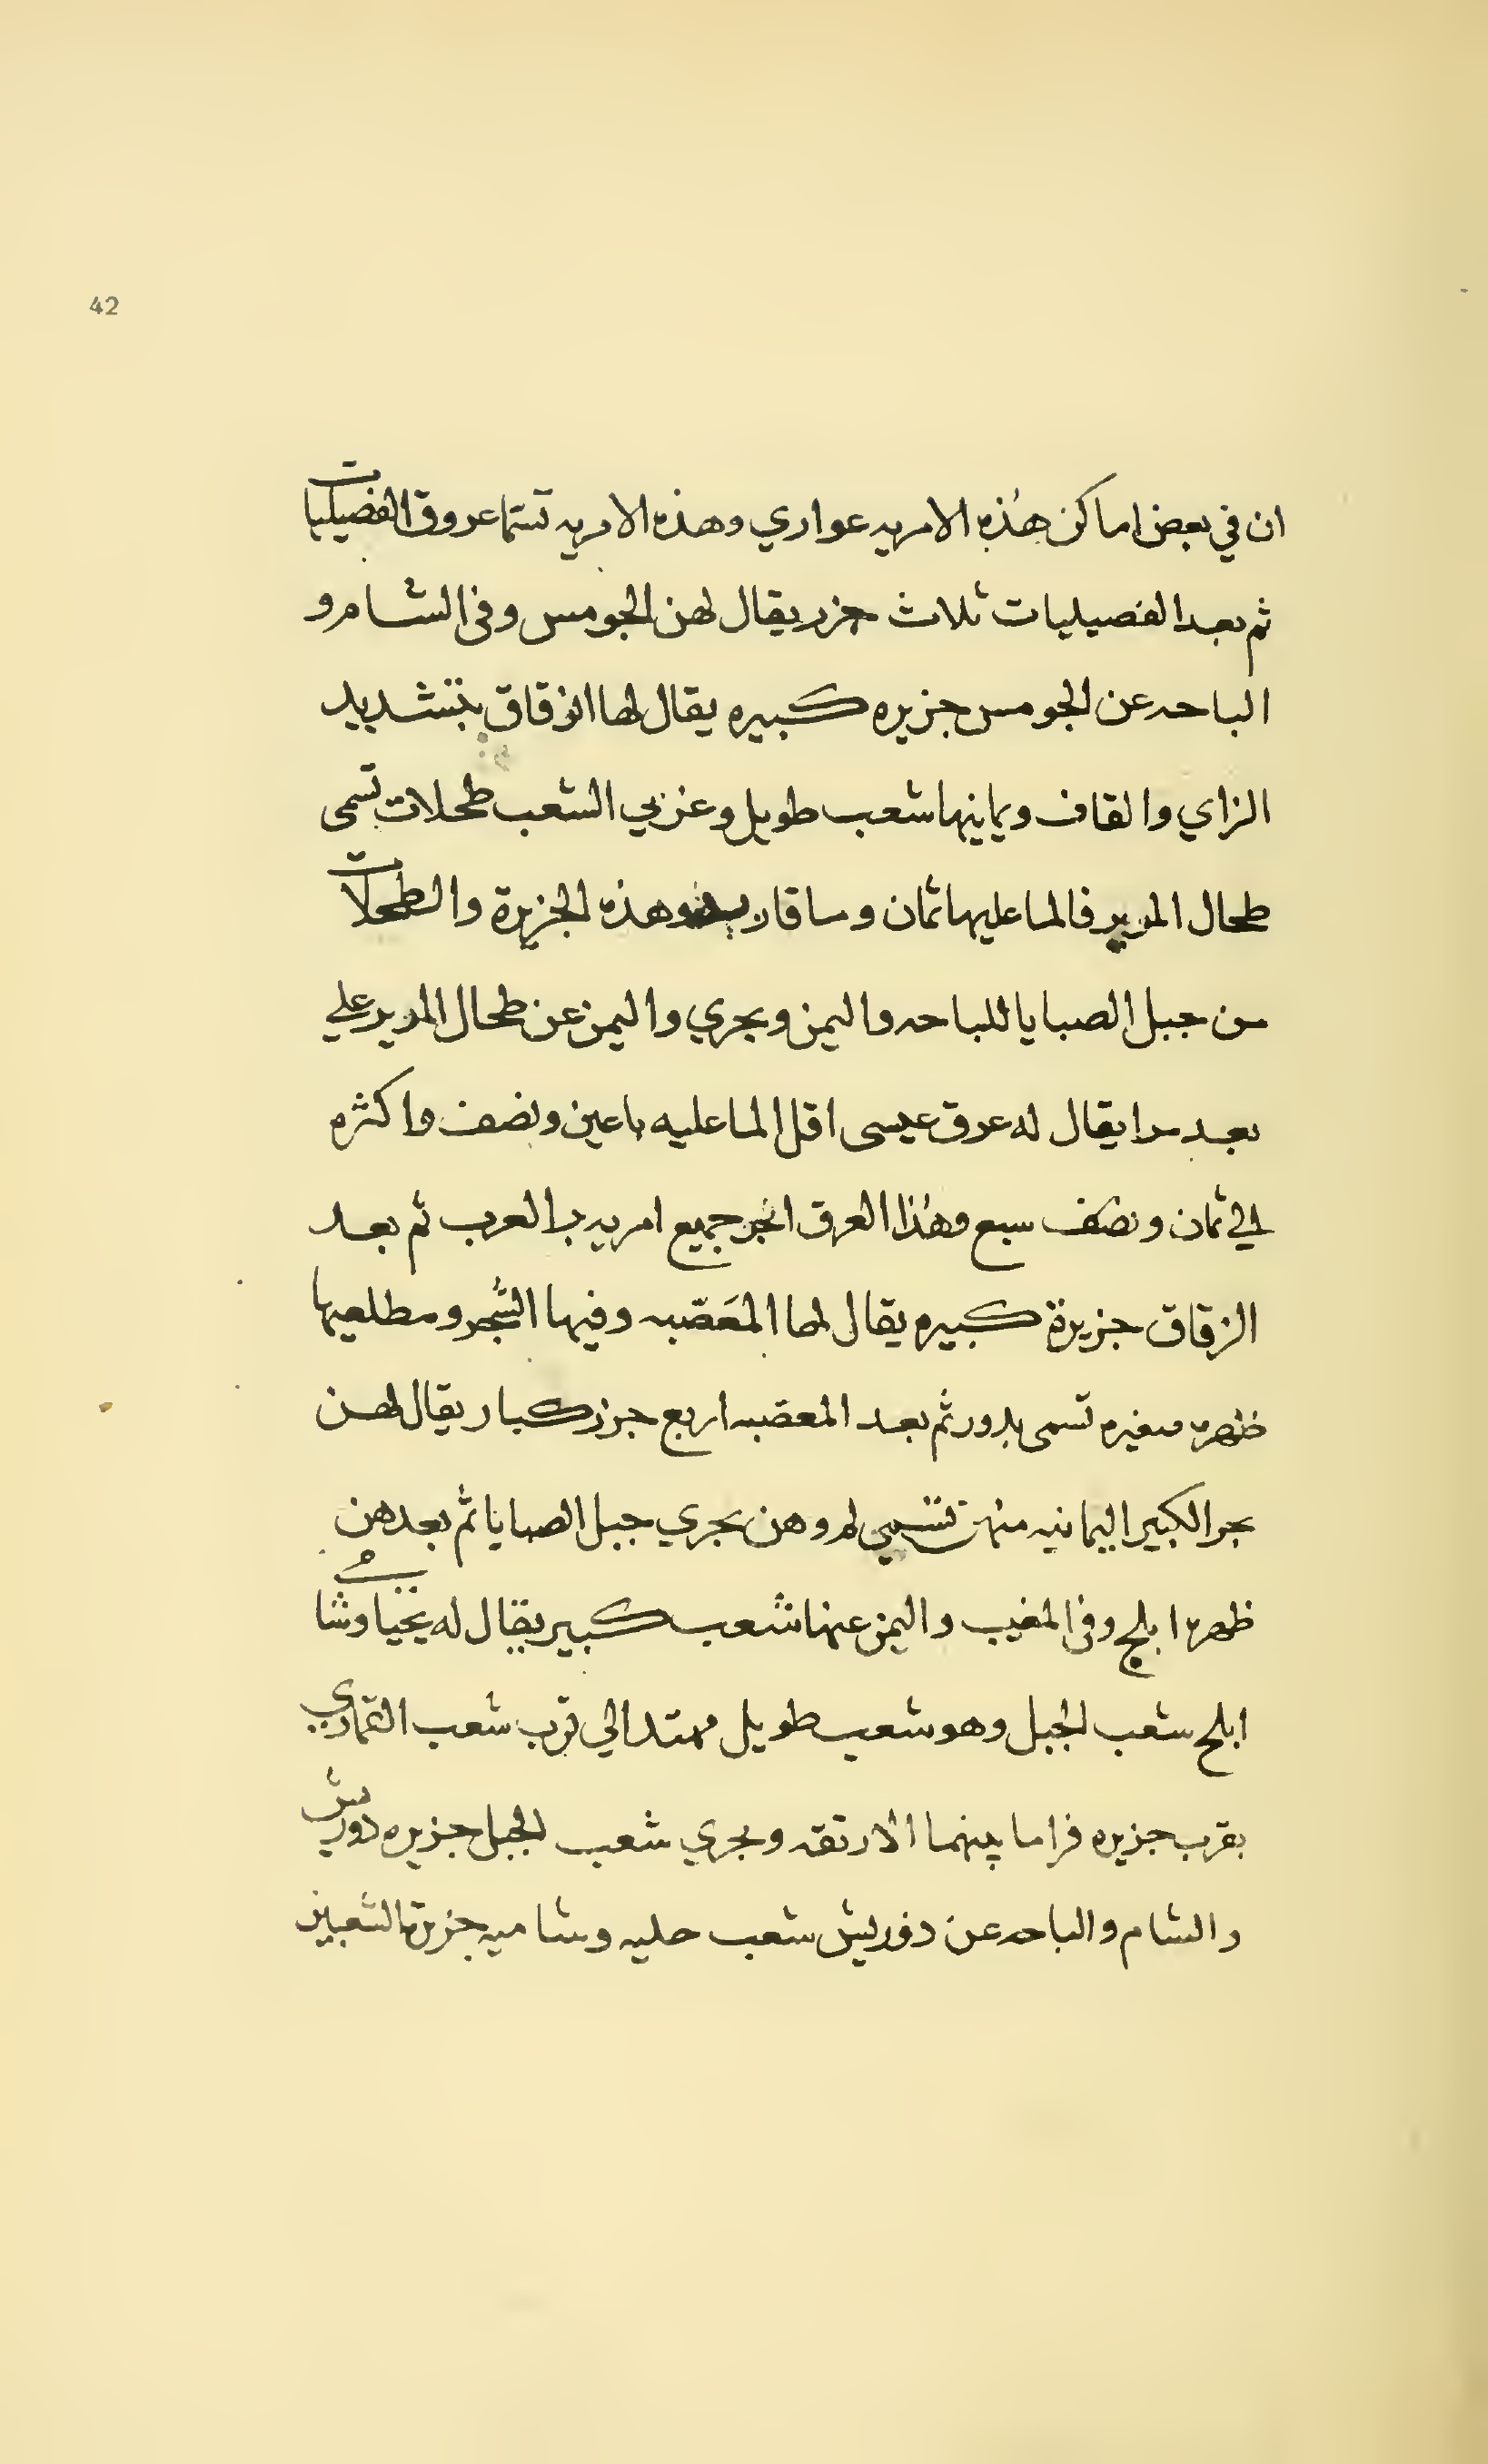 42
ان في بعض اماكن هذه الامريه عواري وهذه الامريه تسما عروق الفصيليات
ثم بعد الفصيليات ثلاث جزر يقال لهن الجومس وفي الشام و
الباحه عن الجومس جزيره كبيره يقال لها الزقاق بتشديد
الزاي والقاف ويمانيها شعب طويل وغربي الشعب طحلات تسمى
طحال المرير فالما عليها ثمان وما قارب وهذه الجزيرة والطحلات
من جبل الصبايا للباحه واليمن وبحري واليمن عن طحال المرير علي
بعد مرا يقال له عرق عيسى اقل الما عليه باعين ونصف واكثره
الي ثمان ونصف سبع وهذا العرق اخر جميع امريه بر العرب ثم بعد
الزقاق جزيرة كبيره يقال لها المعَصّبه وفيها الشجر ومطلعيها
ظهره صغيره تسمى بدور ثم بعد المعصبه اربع جزر كبار يقال لهن
جر الكبير اليمانيه منهن تسمي وهن بحري جبل الصبايا ثم بعدهن
ظهرة ابلج وفي المغيب واليمن عنها شعب كبير يقال له وشامي
ابلج شعب الجبل وهو شعب طويل ممتد الي قرب شعب القماري
بقرب جزيره فراما بينهما الا رتقه وبحري شعب الجبل جزيره دوريش
والشام والباحه عن دوريش شعب حليه وشاميه جزيرة الشعبين